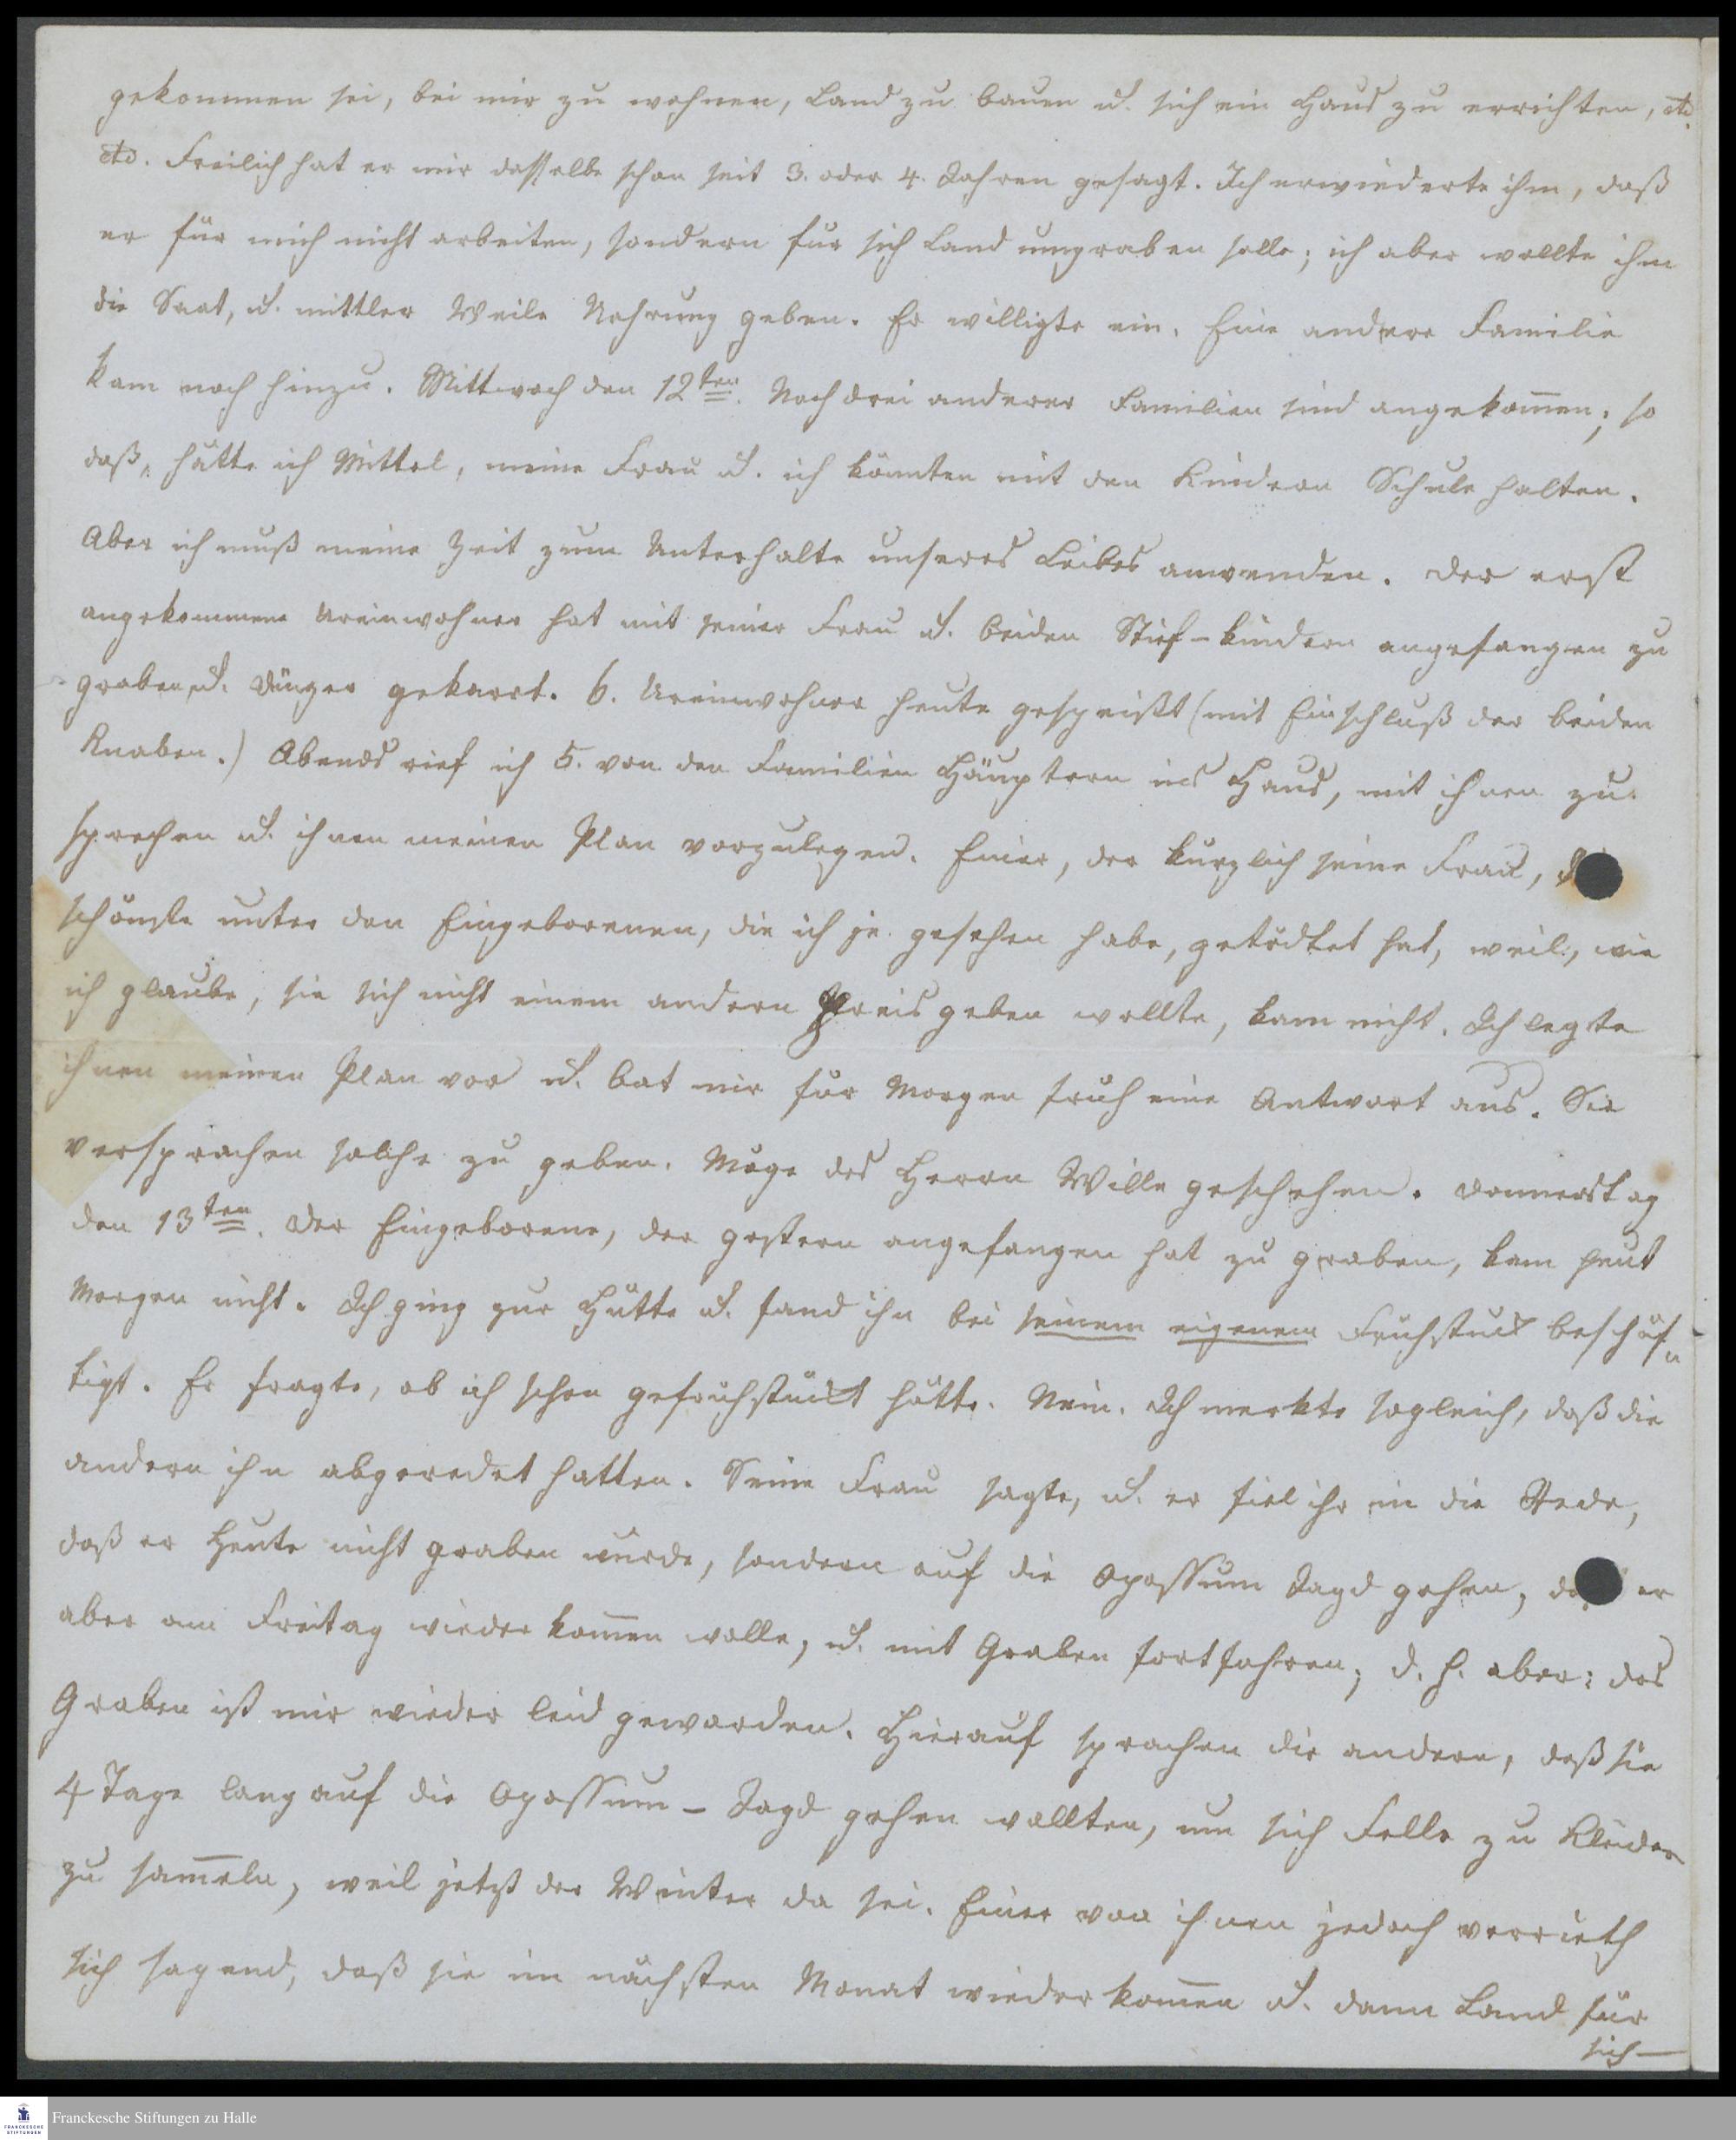 gekommen sei, bei mir zu wohnen, Land zu bauen u. sich ein Haus zu errichten, etc.
etc. Freilich hat er mir dasselbe schon seit 3. oder 4. Jahren gesagt. Ich erwiederte ihm, daß
er für mich nicht arbeiten, sondern für sich Land umgraben solle; ich aber wollte ihm
die Saat, u. mittler Weile Nahrung geben. Er willigte ein. Eine andere Familie
kam noch hinzu. Mittwoch den 12ten. Noch drei anderer Familien sind angekom̅en; so
daß, hätte ich Mittel, meine Frau u. ich könnten mit den Kindern Schule halten.
Aber ich muß meine Zeit zum Unterhalte unseres Leibes anwenden. Der erst
angekommene Ureinwohner hat mit seiner Frau u. beiden Stief-kindern angefangen zu
graben, u. Dünger gekarrt. 6. Ureinwohner heute gespeißt (mit Einschluß der beiden
Knaben.) Abends rief ich 5. von den Familien Häuptern ins Haus, mit ihnen zu
sprechen u. ihnen meinen Plan vorzulegen. Einer, der kürzlich seine Frau,
schönste unter den Eingeborenen, die ich je gesehen habe, getödtet hat, weil, wie
ich glaube, sie sich nicht einem andern Preis geben wollte, kam nicht. Ich legte
ihnen meinen Plan vor u. bat mir für Morgen früh eine Antwort aus. Sie
versprachen solche zu geben. Möge des Herrn Wille geschehen. Donnerstag
den 13ten. Der Eingeborene, der gestern angefangen hat zu graben, kam heut
Morgen nicht. Ich ging zur Hütte u. fand ihn bei seinem eigenem Frühstück beschäf=
tigt. Er fragte, ob ich schon gefrühstückt hätte. Nein. Ich merkte sogleich, daß die
andern ihn abgeredet hatten. Seine Frau sagte, u. er fiel ihr in die Rede,
daß er Heute nicht graben würde, sondern auf die Opossum Jagd gehen, er
aber am Freitag wieder kom̅en wolle, u. mit Graben fortfahren; d. h. aber: das
Graben ist mir wieder leid geworden. Hierauf sprachen die andern, daß sie
4 Tage lang auf die Opossum-Jagd gehen wollten, um sich Felle zu Kleider
zu sam̅eln, weil jetzt der Winter da sei. Einer von ihnen jedoch verrieth
sich sagend, daß sie im nächsten Monat wieder kom̅en u. dann Land für
sich—
Franckesche Stiftungen zu Halle